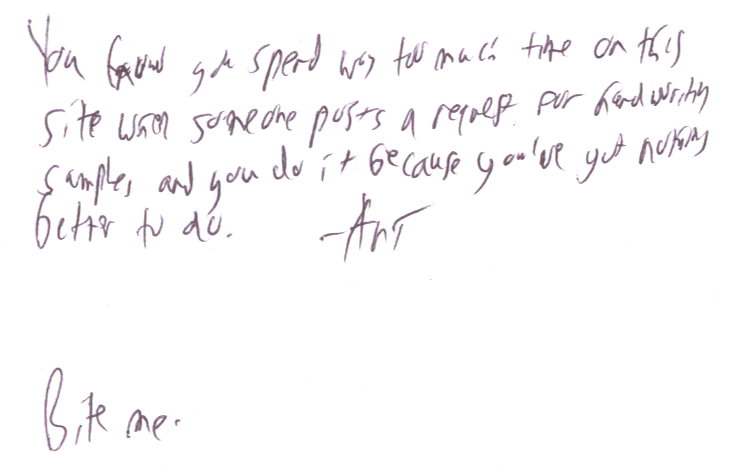 You know you spend way too much time on this
site when someone posts a request for handwriting
samples, and you do it because you've got nothing
better to do. -Ant
Bite me.